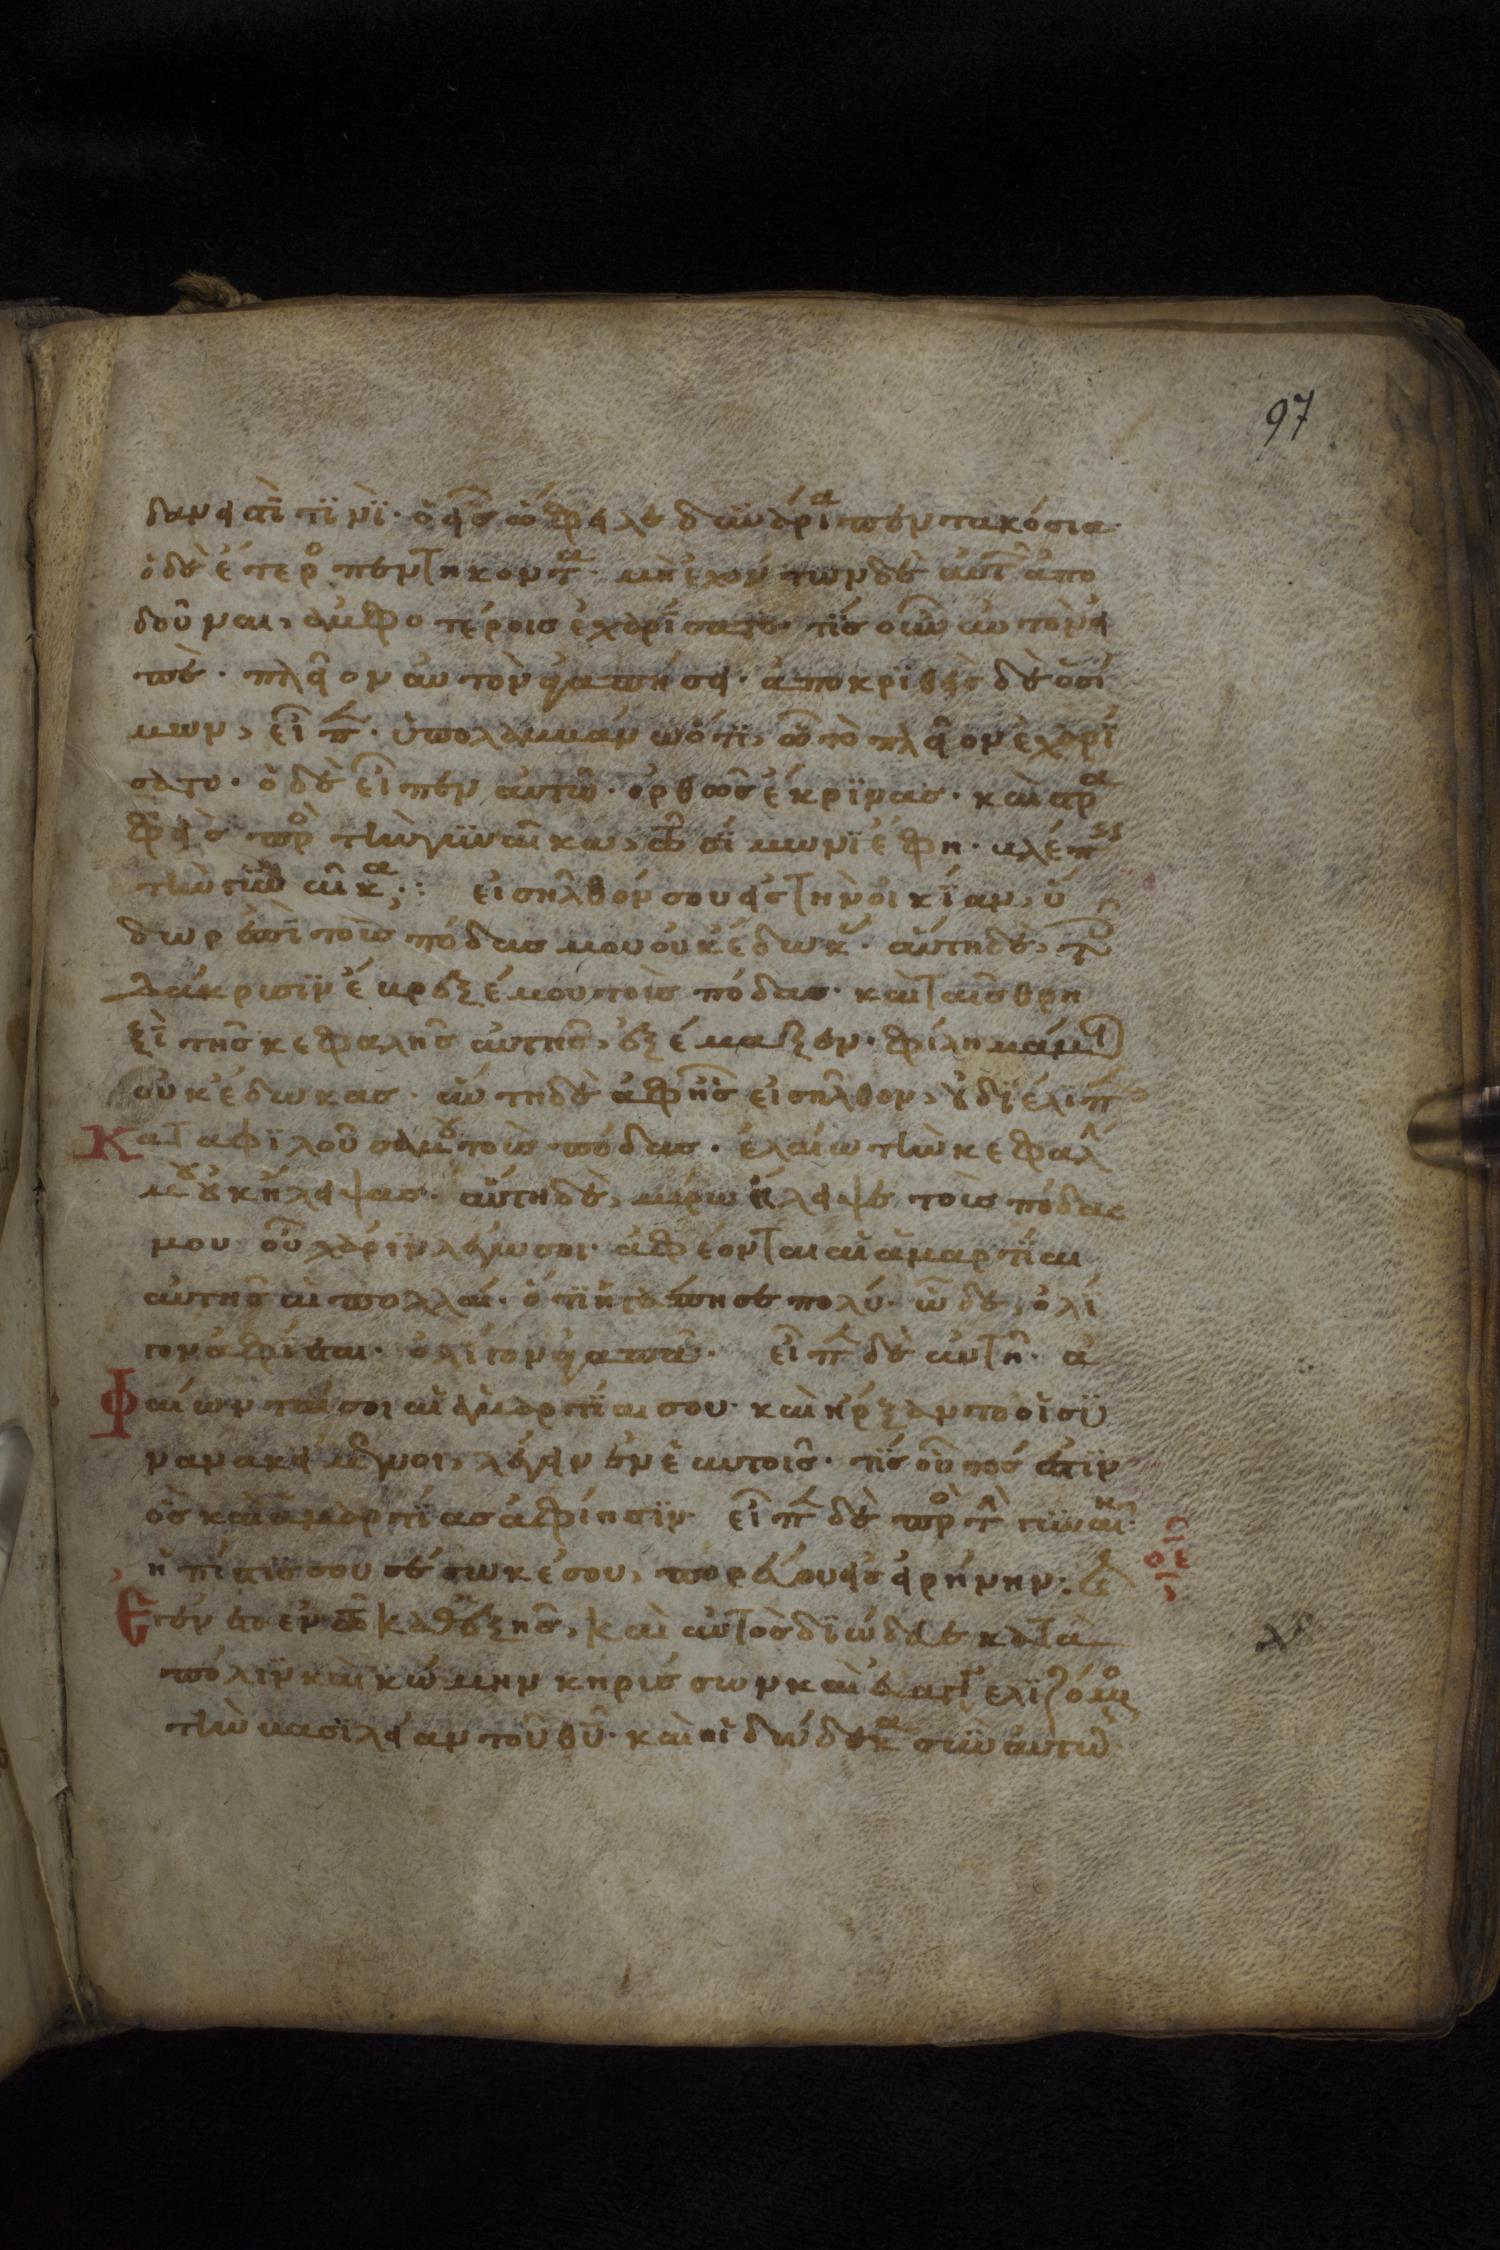 97
δανειστῆ τϊνὶ· ὁ εἷς ὤφειλε δηνάρια πεντακόσια·
ὁ δὲ ἕτερο πεντήκοντα· μὴ ἐχόντων δὲ αὐτ ἀπο
δοῦναι, ἀμφοτέροις ἐχαρίσατο· τίς οὖν αὐτὸν εἰ
πὲ· πλεῖον αὐτὸν ἀγαπήσει· ἀποκρϊθεὶς δὲ ὁ σί
μων, εἶπ· ὑπολαμβάνω ὅτϊ, ὧ τὸ πλεῖον ἐχαρί
σατο· ὁ δὲ εἶπεν αὐτῶ· ὀρθῶς ἔκρϊνας· καὶ στρα
φεὶς πρὸ τὴν γϋναῖκα, τῶ σίμωνϊ ἔφη· βλέπεις
τὴν γϋναῖκα; εἰσῆλθόν σου εἰς τὴν οἰκίαν, ὕ
δωρ ἐπὶ τοὺς πόδας μου οὐκ ἔδωκ· αὕτη δὲ, τοῖς
δάκρυσϊν ἔβρεξέ μου τοὺς πόδας· καὶ ταῖς θρη
ξὶ τῆς κεφαλῆς αὐτῆς, ἐξέμαξεν· φίλημά μοι
οὐκ ἔδωκας· αὕτη δὲ ἀφῆς εἰσῆλθον, οὐ διέλιπε
Καταφϊλοῦσά μου τοὺς πόδας· ἐλαίω τὴν κεφαλ
μου οὐκ ἤλειψας· αὕτη δὲ, μύρω ἤλειψέ τοὺς πόδας
μου οὗ χάρϊν λέγω σοι· ἀφέονται αἱ ἁμαρτίαι
αὐτῆς αἱ πολλαί· ὅτϊ ἠγάπησε πολύ· ὧ δὲ, ὀλί
γον ἀφίεται· ὀλίγον ἀγαπᾶ· εἶπ δὲ αὐτῆ· ἀ
Φαίωνταί σοι αἱ ἁμαρτίαι σου· καὶ ἤρξαντο οἱ σϋ
νανακείμενοι, λέγειν ἐν ἑαυτοῖς· τίς οὗτός ἐστϊν
ὃς καὶ ἁμαρτίας ἀφίησϊν· εἶπ δὲ πρὸ τ γϋναῖκ·
ἡ πίστϊς σου σέσωκέ σου, πορεύου εἰς εἰρήνην:
Εγένετο ἐν τῶ καθεξῆς, καὶ αὐτὸς διώδευε κατὰ
πόλϊν καὶ κώμην κηρύσσων καὶ εὐαγγελϊζόμενος
τὴν βασϊλείαν τοῦ θυ· καὶ οἱ δώδεκα σὺν αὐτῶ